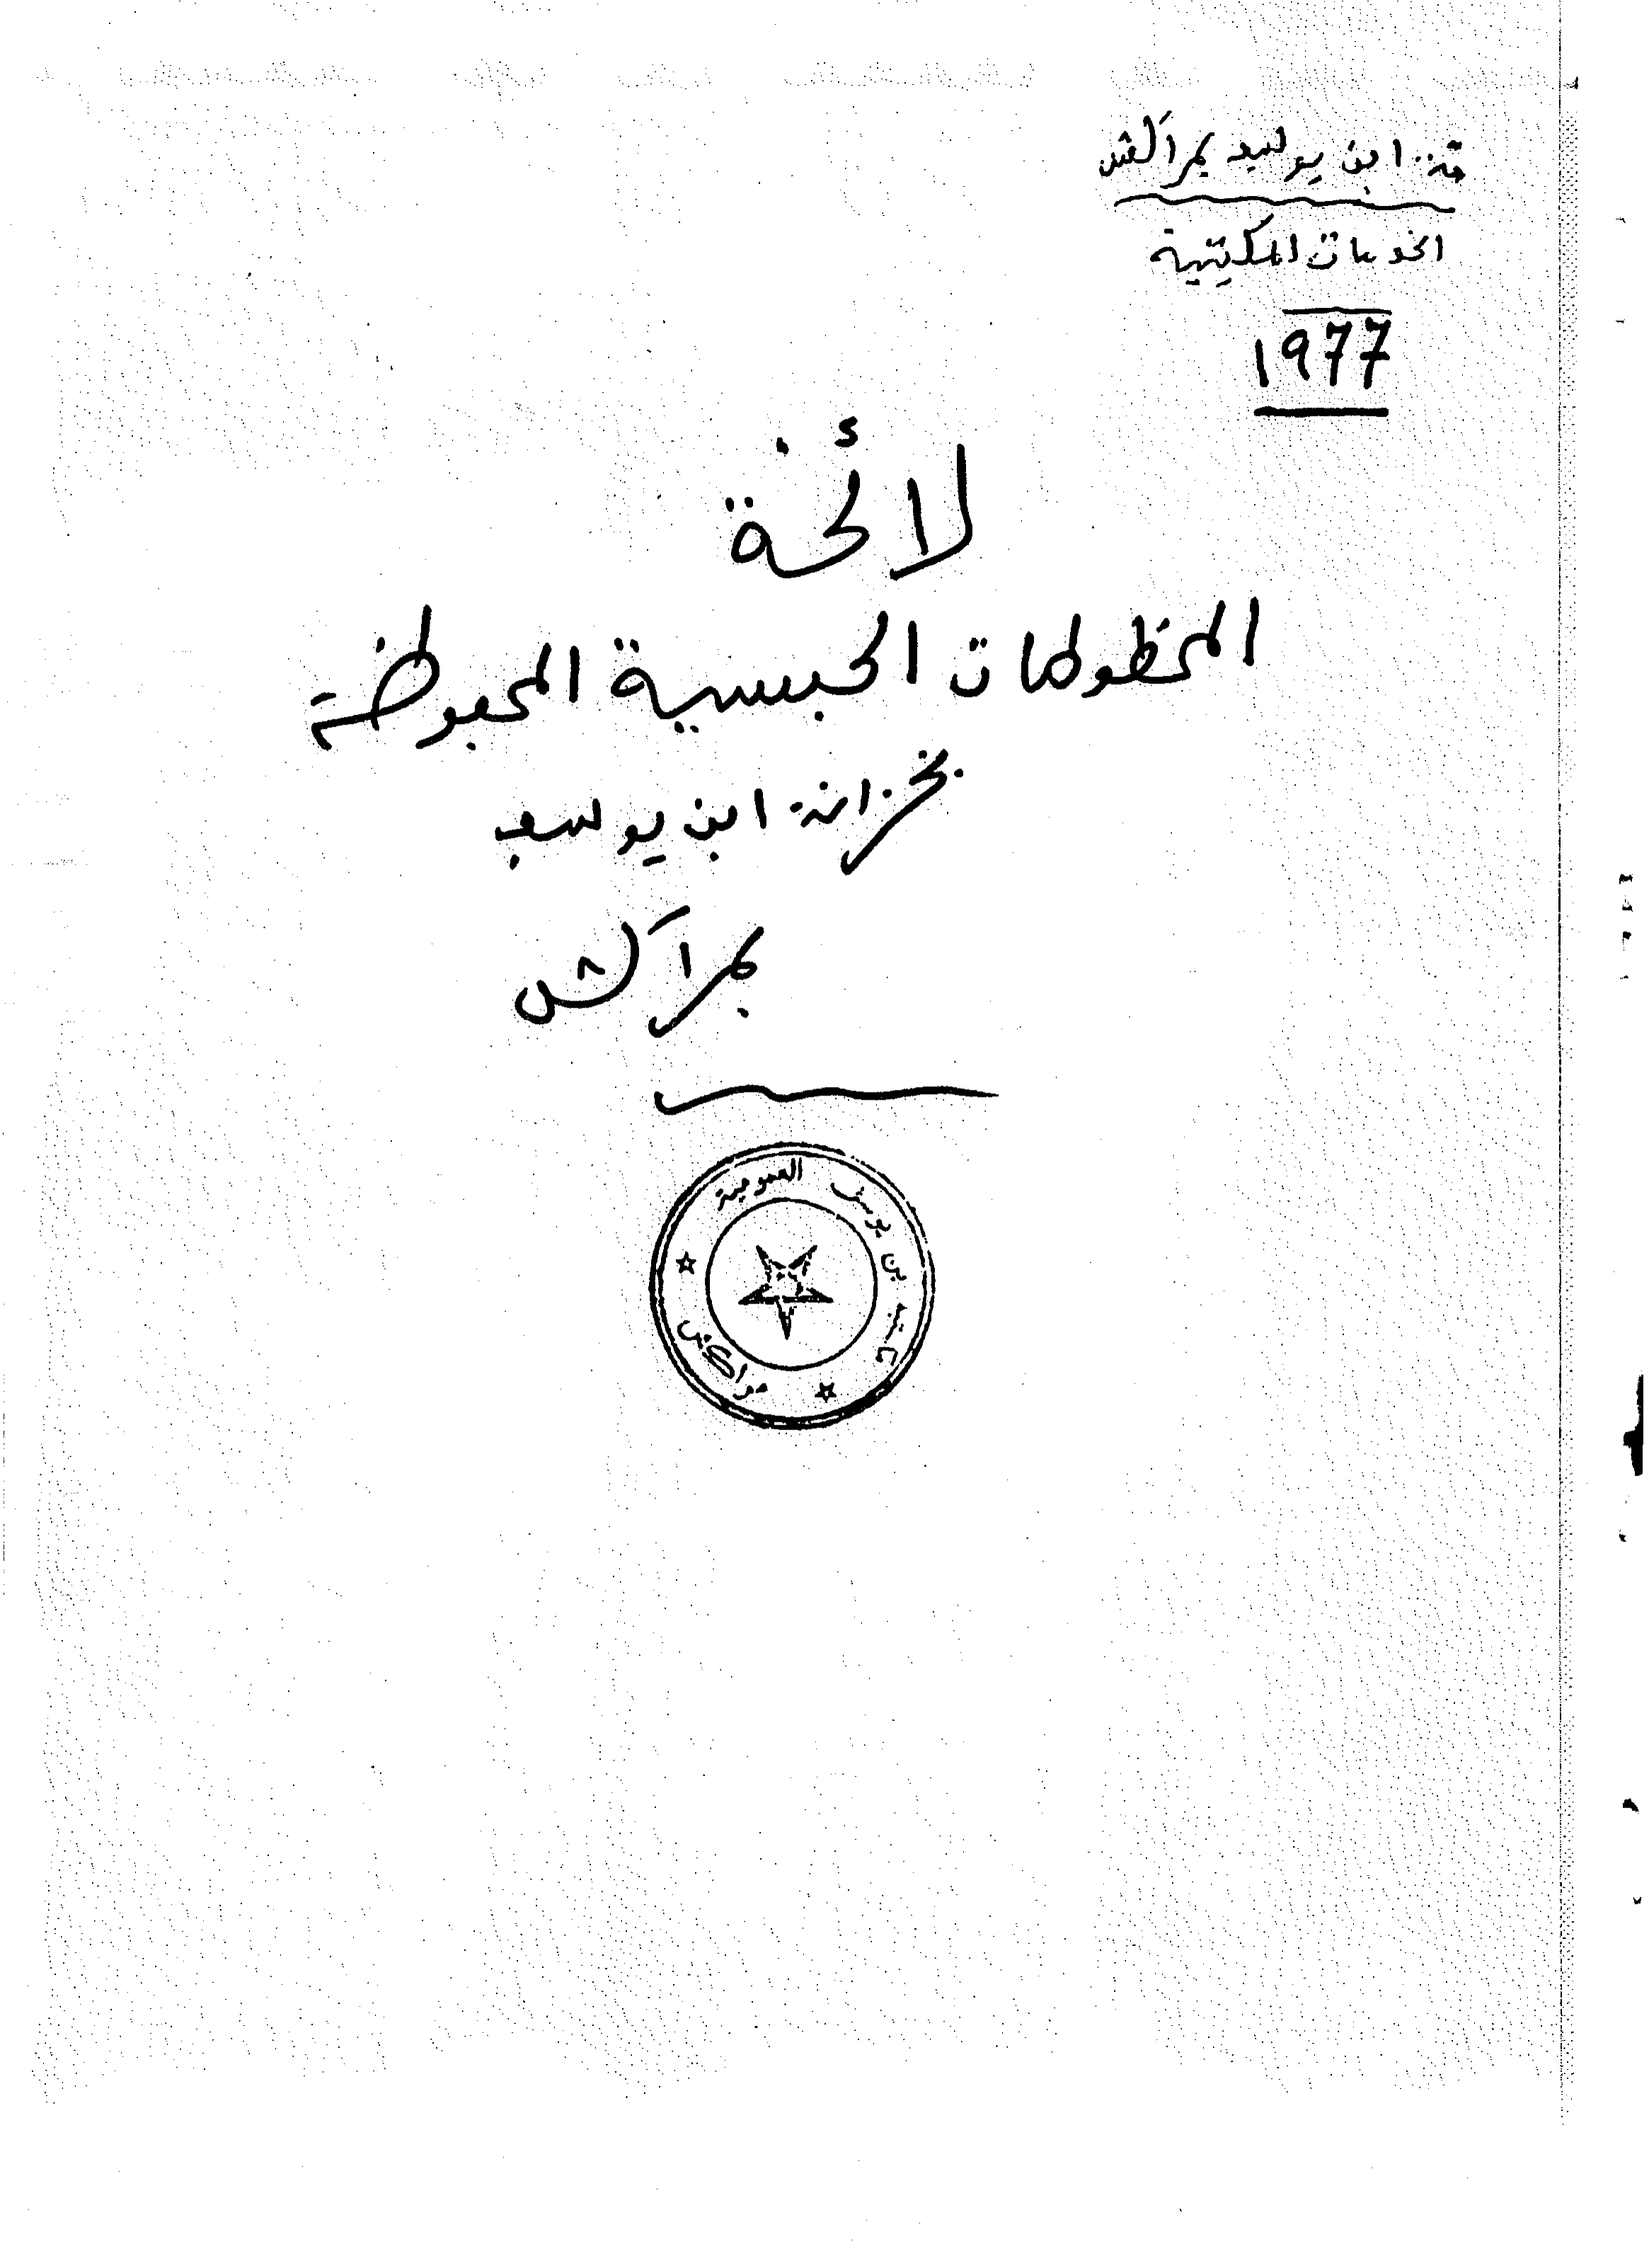 ـنة ابن يوسف بمراكش
الخدمات المكتبية
1977
لائحة
المخطوطات الحبسية المحفوظة
بخزانة ابن يوسف
بمراكش
مكتبة بن يوسف العمومية
مراكش